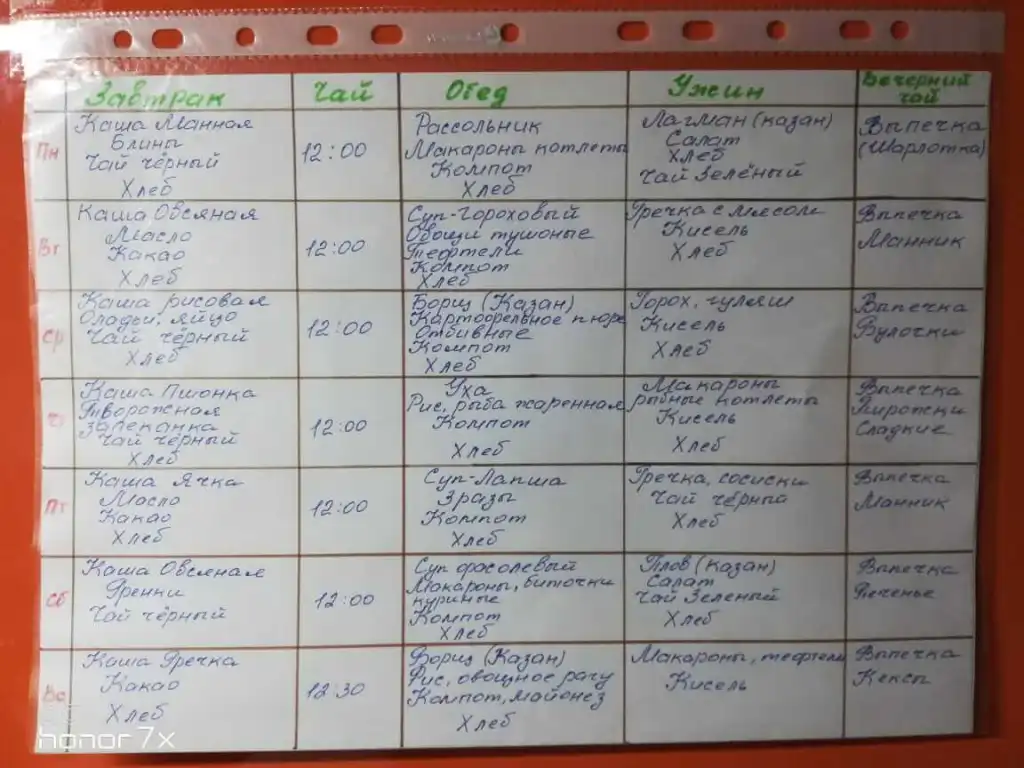 Завтрак Чай Обед Ужин Вечерний чай
Пн
Каша Манная
Блины
Чай чёрный
Хлеб
12:00
Рассольник
Макароны котлеты
Компот
Хлеб
Лагман (казан)
Салат
Хлеб
Чай Зелёный
Выпечка
(Шарлотка)
Вт
Каша Овсяная
Масло
Какао
Хлеб
12:00
Суп-Гороховый
Овощи тушоные
Тефтели
Компот
Хлеб
Гречка с мясом
Кисель
Хлеб
Выпечка
Манник
Ср
Каша рисовая
Оладьи, яйцо
Чай чёрный
Хлеб
12:00
Борщ (Казан)
Картофельное пюре
Отбивные
Компот
Хлеб
Горох, гуляш
Кисель
Хлеб
Выпечка
Булочки
Чт
Каша Пшонка
Творожная
Запеканка
Чай чёрный
Хлеб
12:00
Уха
Рис, рыба жаренная
Компот
Хлеб
Макароны
рыбные котлеты
Кисель
Хлеб
Выпечка
Пирожки
Сладкие
Пт
Каша Ячка
Масло
Какао
Хлеб
12:00
Суп-Лапша
Зразы
Компот
Хлеб
Гречка, сосиски
Чай чёрный
Хлеб
Выпечка
Манник
Сб
Каша Овсяная
Гренки
Чай чёрный
12:00
Суп фасолевый
Макароны, биточки
куриные
Компот
Хлеб
Плов (Казан)
Салат
Чай Зеленый
Хлеб
Выпечка
Печенье
Вс
Каша Гречка
Какао
Хлеб
12:30
Борщ (Казан)
Рис, овощное рагу
Компот, майонез
Хлеб
Макароны, тефтели
Кисель
Выпечка
Кексы
honor 7x